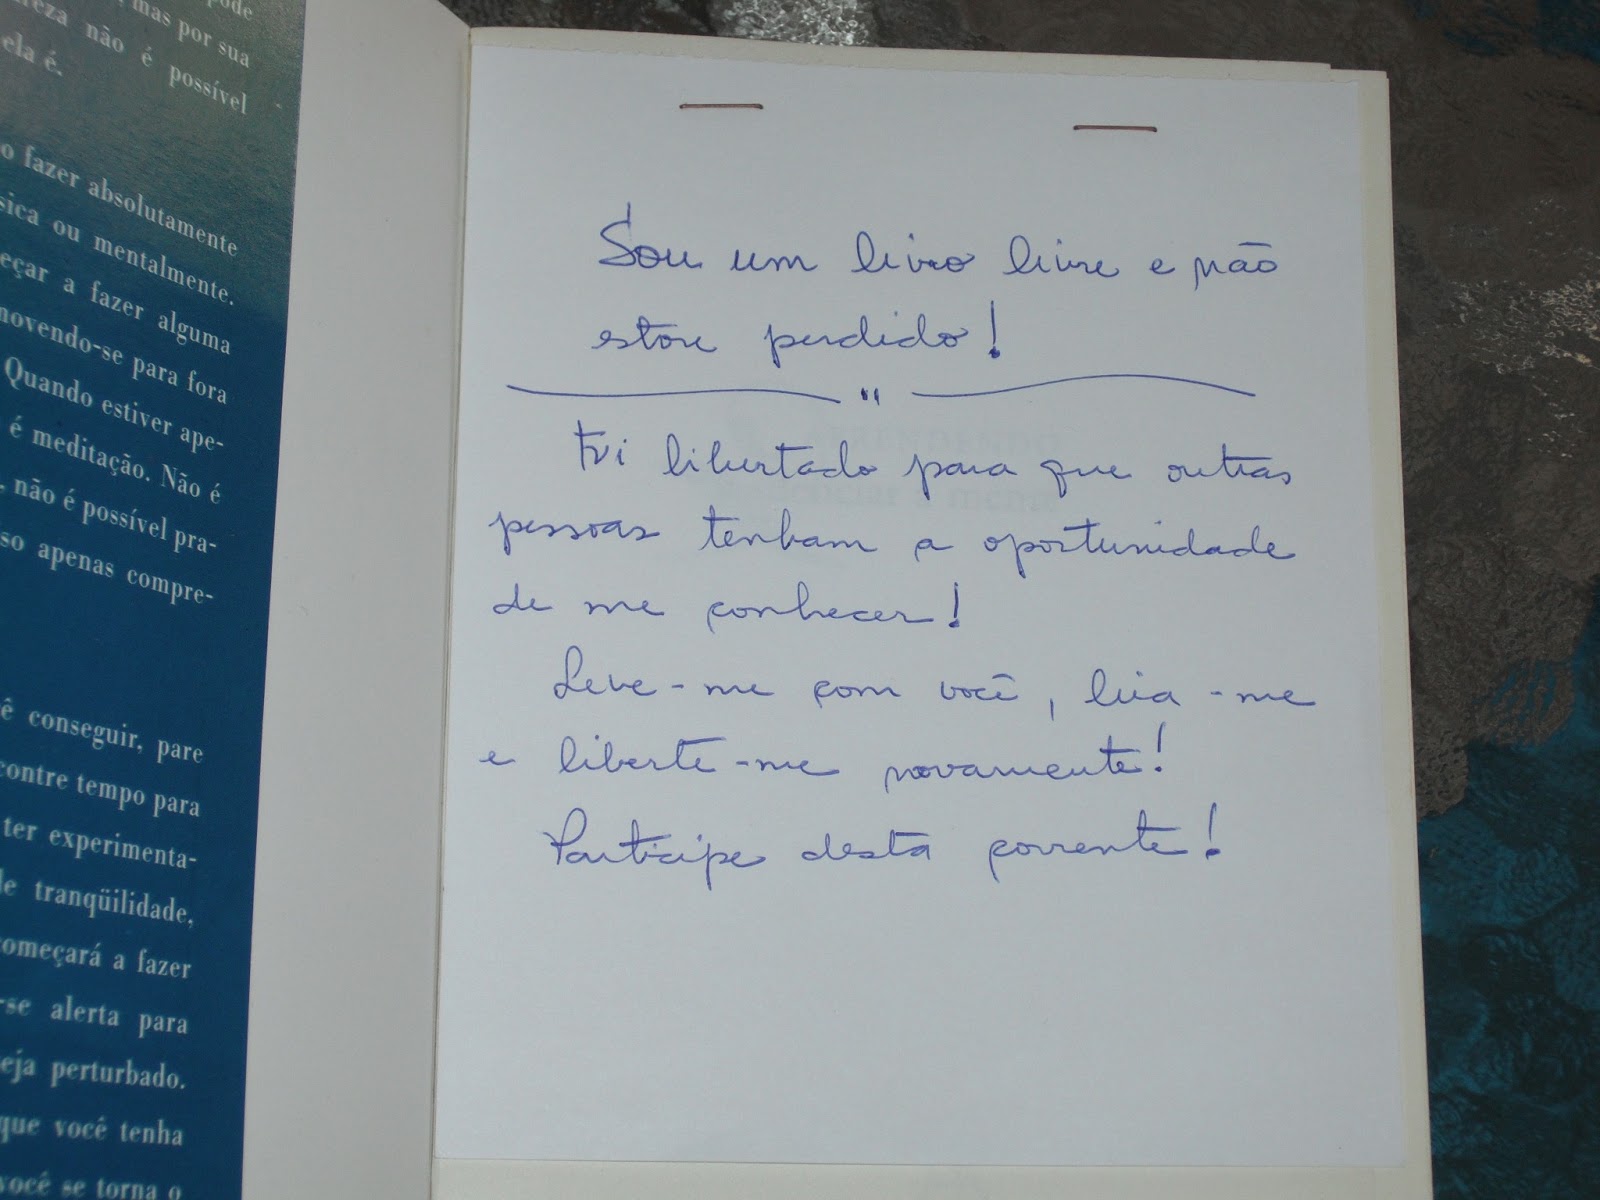 pode
mas por sua
reza não é possível
ela é.
o fazer absolutamente
sica ou mentalmente.
eçar a fazer alguma
movendo-se para fora
Quando estiver ape-
é meditação. Não é
, não é possível pra-
so apenas compre-
ê conseguir, pare
contre tempo para
ter experimenta-
de tranqüilidade,
começará a fazer
-se alerta para
eja perturbado.
que você tenha
você se torna o
Sou um livro livre e não
estou perdido!
Fui libertado para que outras
pessoas tenham a oportunidade
de me conhecer!
Leve-me com você, leia-me
e liberte-me novamente!
Participe desta corrente!